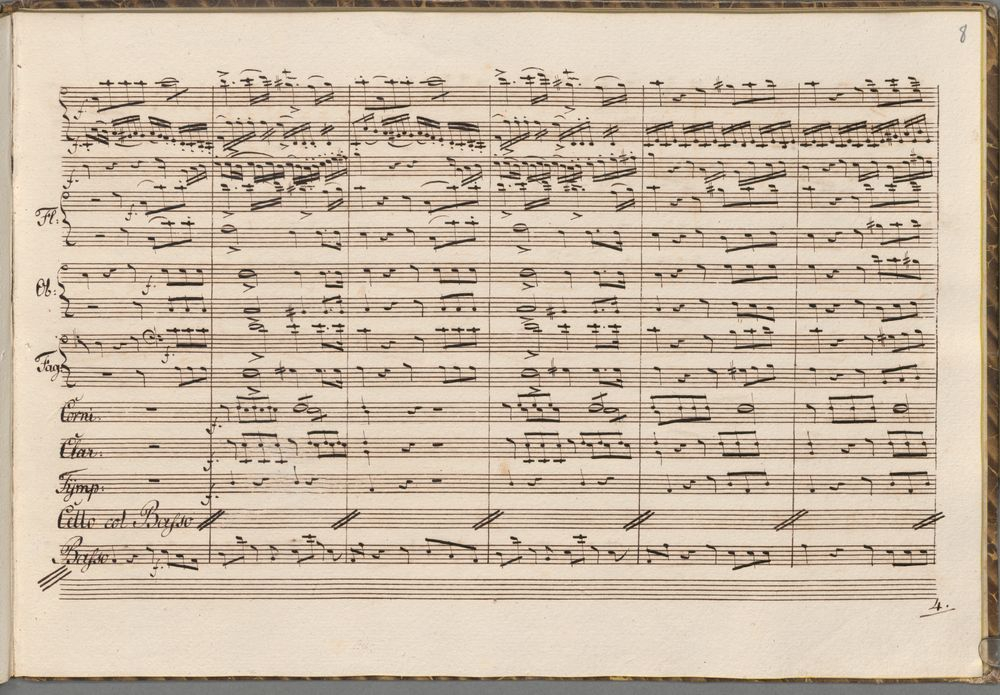 8
f.
f.
f.
Fl: f.
Ob: f.
f.
Fag:
Corni. f.
Clar: f.
Tÿmp: f.
Cello col Basso
Basso. f.
4.